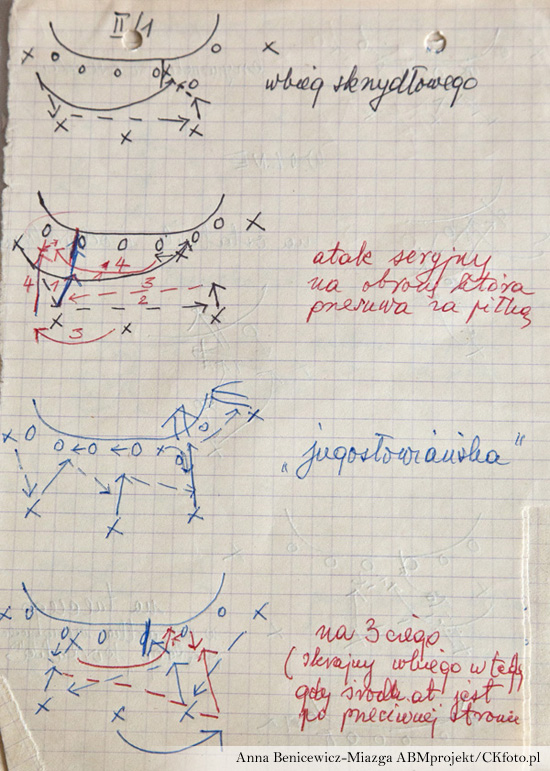 II/1
wbieg skrzydłowego
atak seryjny
na obronę która
przesuwa za piłką
4
4
1
3
2
3
„jugosłowiańska"
na 3 ciego
(skrajny wbiega wtedy
gdy środk. at. jest
po przeciwnej stronie
Anna Benicewicz-Miazga ABMprojekt/CKfoto.pl